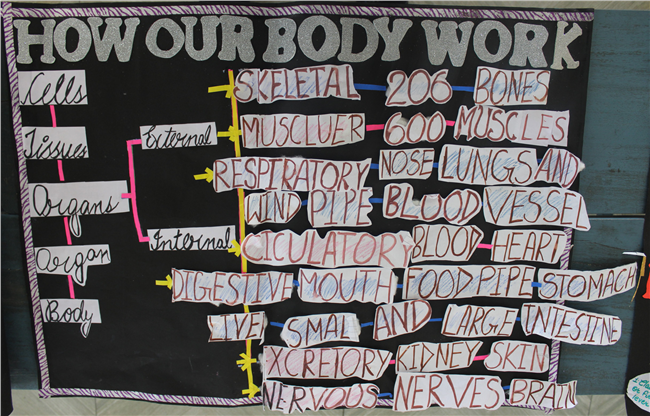 HOW OUR BODY WORK
Cells
Tissues
Organs
Organ
Body
External
Internal
SKELETAL 206 BONES
MUSCLUER 600 MUSCLES
RESPIRATORY NOSE LUNGS AND
WIND PIPE BLOOD VESSEL
CICULATORY BLOOD HEART
DIGESTIVE MOUTH FOOD PIPE STOMACH
LIVE SMAL AND LARGE INTESTINE
EXCRETORY KIDNEY SKIN
NERVOUS NERVES BRAIN